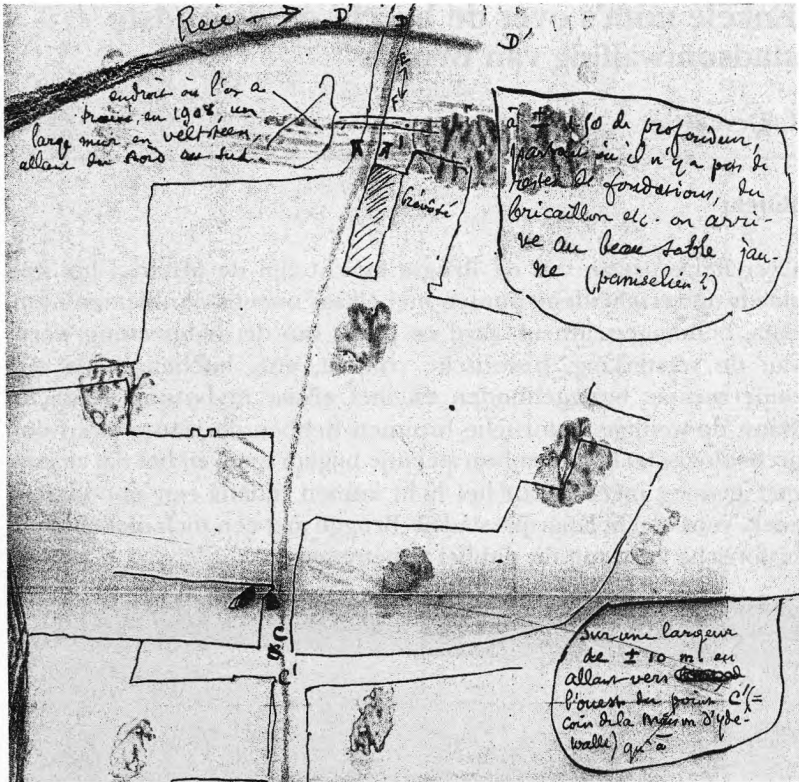 Reie
D'
D
D'
E
F
endroit où l'on a
trouvé, en 1908, un
large mur en veltsteen,
allant du Nord au Sud.
A
A'
Prévôté
à ± 1.50 de profondeur,
partout où il n'y a pas de
restes de fondations, du
bricaillon etc. on arri-
ve au beau sable jau-
ne (paniselien?)
C
C'
Sur une largeur
de ± 10 m. en
allant vers
l'ouest du point C' (=
coin de la maison d'Yde-
walle) qu'à